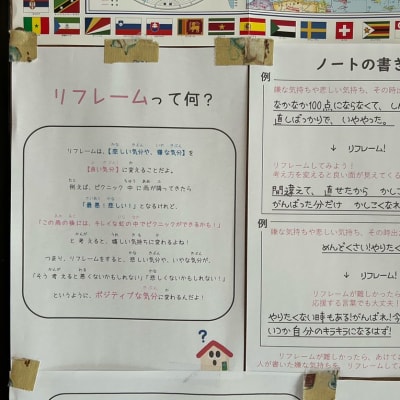 リフレームって何？
リフレームは、【悲しい気分や、嫌な気分】を
【良い気分】に変えることだよ。
例えば、ピクニック中に雨が降ってきたら
「最悪！悲しい！」となるけれど、
「この雨の後には、キレイな虹の中でピクニックができるかも！」
と考えると、嬉しい気持ちに変わるよね！
つまり、リフレームをすると、悲しい気分や、いやな気分が、
「そう考えると悪くないかもしれない」「悲しくないかもしれない！」
というように、ポジティブな気分に変わるんだよ！
?
ノートの書き
例
嫌な気持ちや悲しい気持ち、その時
なかなか100点にならなくて、し
直しばっかりで、いややった。
↓ リフレーム!
リフレームしてみよう!
考え方を変えると良い面が見えてくる
間違えて、直せたから かしこ
がんばった分だけ かしこくなれ
例
嫌な気持ちや悲しい気持ち、その時
めんどくさい!やりたく
↓ リフレーム!
リフレームが難しかったら
応援する言葉でも大丈夫!
やりたくない時もある!がんばれ!今
いつか自分のキラキラになるはず!
リフレームが難しかったら、あけてお
人が書いた嫌な気持ちも、リフレームして